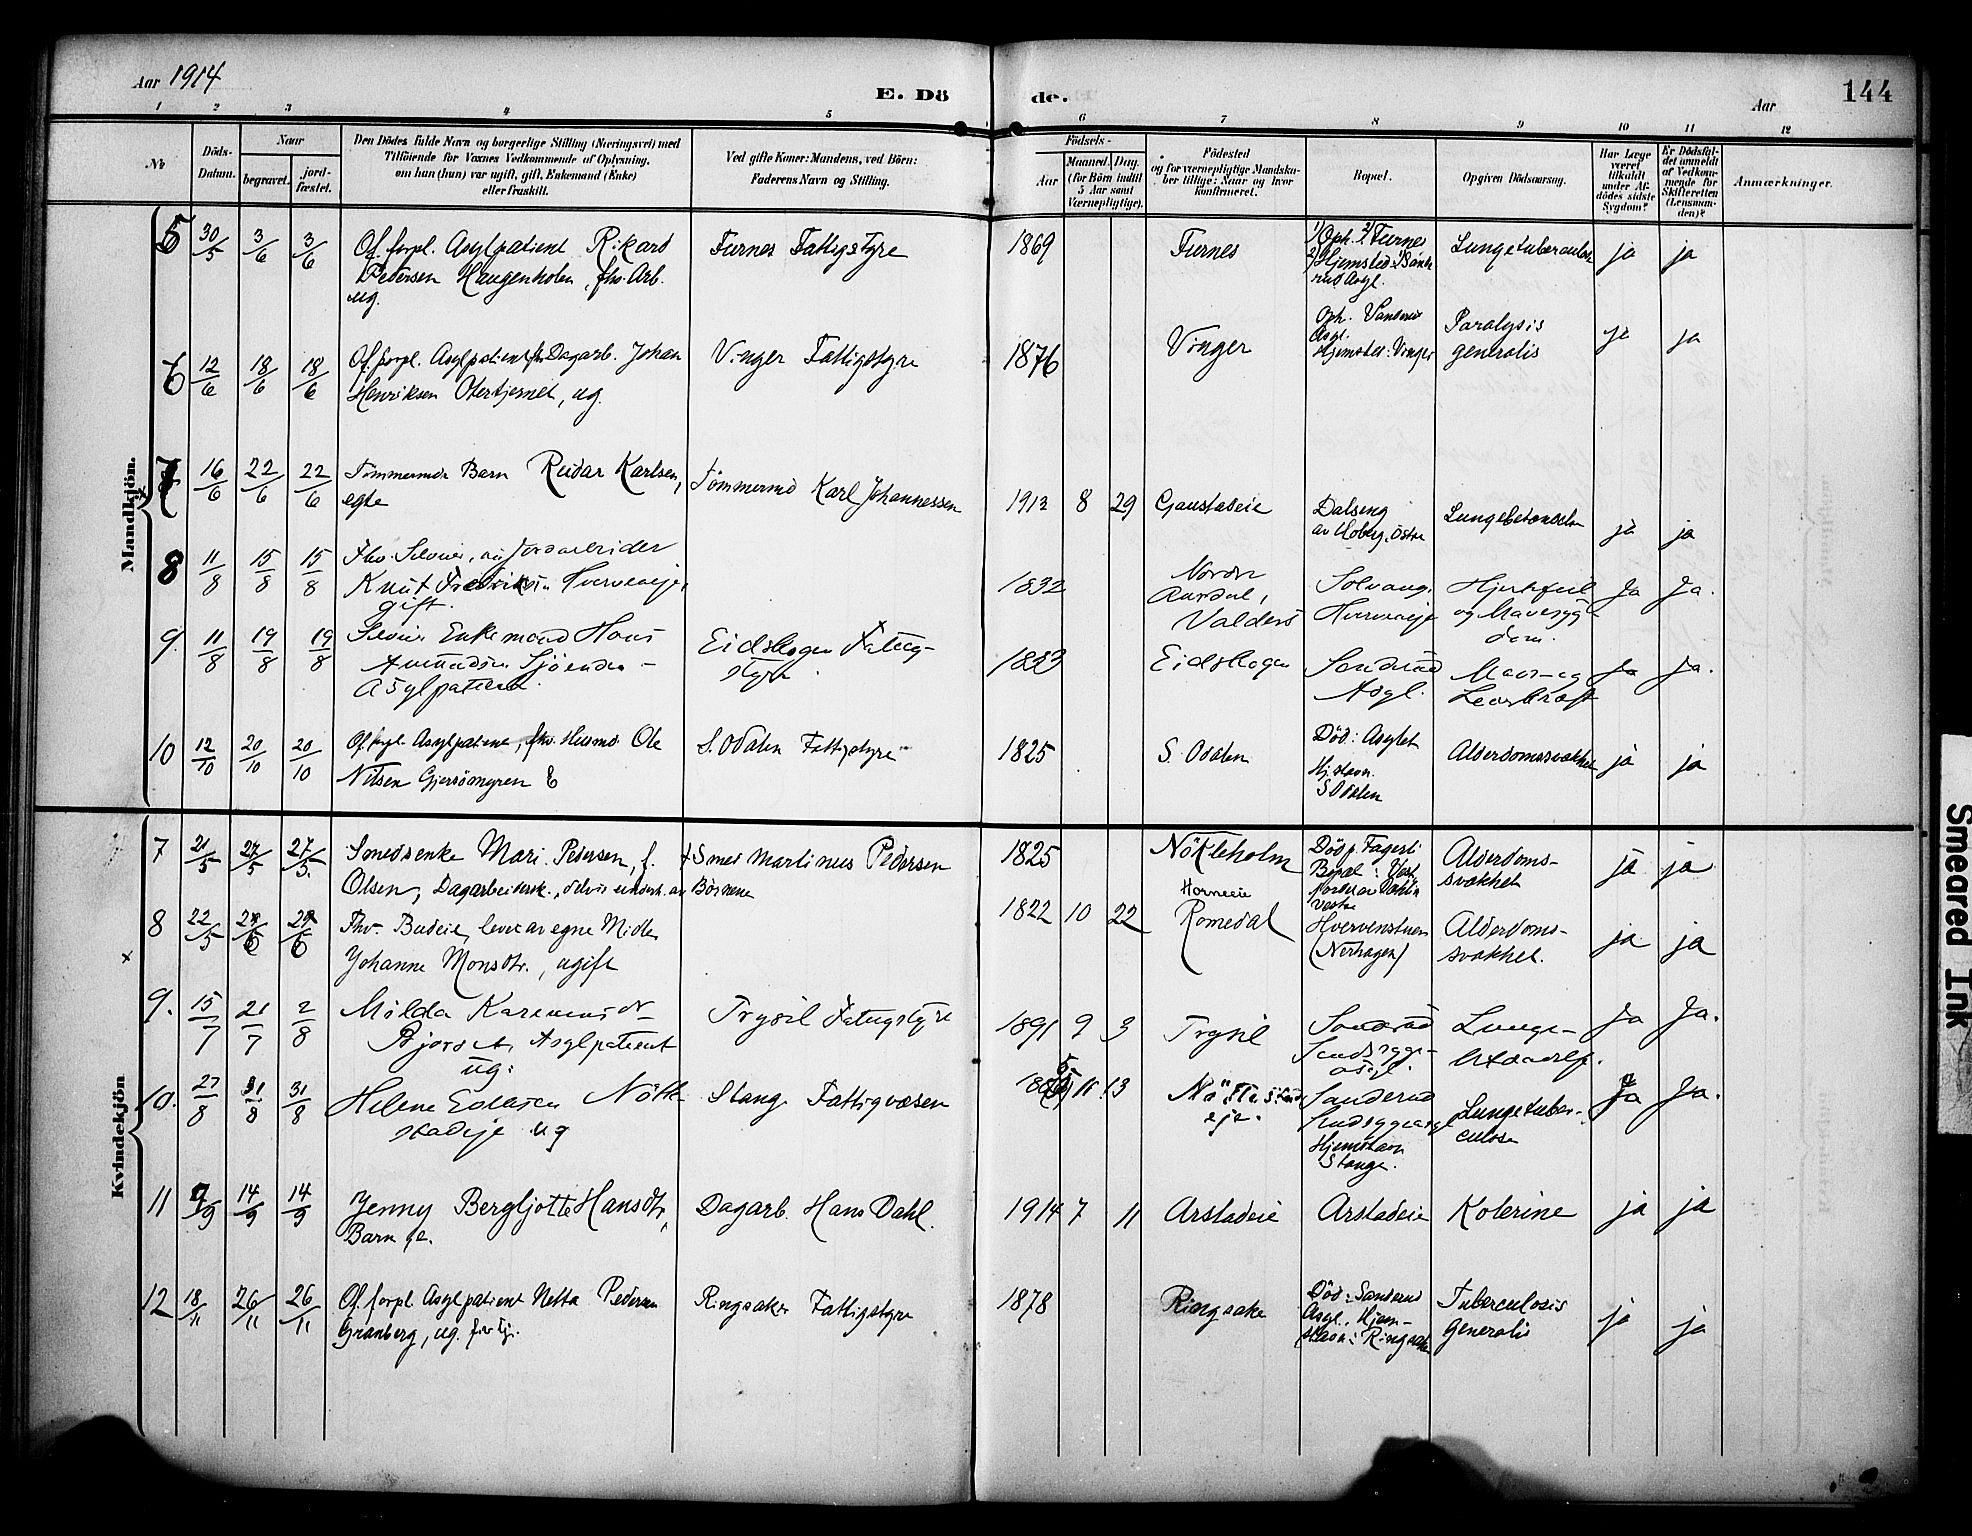 Aar 1914
E. Dö de.
Aar
144
1 2 3 4 5 6 7 8 9 10 11 12
No
Döds-Datum.
Naar
begravet.
jord-fæstet.
Den Dödes fulde Navn og borgerlige Stilling (Næringsvei) med
Tilföiende for Voxnes Vedkommende af Oplysning,
om han (hun) var ugift, gift, Enkemand (Enke)
eller fraskilt.
Ved gifte Koner: Mandens, ved Börn:
Faderens Navn og Stilling.
Födsels-
Aar
Maaned. Dag.
(for Börn indtil
5 Aar samt
Værnepligtige).
Födested
og for værnepligtige Mandskaber tillige: Naar og hvor
konfirmeret.
Bopæl.
Opgiven Dödsaarsag.
Har Læge
været
tilkaldt
under Afdödes sidste
Sygdom?
Er Dödsfaldet anmeldt
af Vedkommende for
Skifteretten
(Lensmanden)?
Anmærkninger.
Mandkjön.
5 30/5 3/6 3/6 Of. forpl. Asylpatient Rikard Furnes Fattigstyre 1869 Furnes Lungetuberculose ja ja
Pedersen Haugenholen, fhv. Arb.
ug.
1) Oph. 2) Furnes
6 12/6 18/6 18/6 Of. forpl. Asylpatient fhv Dagarb. Johan Vinger Fattigstyre 1876 Vinger Paralysis ja ja
Henriksen Otertjernet, ug. generalis
Asyl.
Hjemsted: Vinger
7 16/6 22/6 22/6 Tömmermds Barn Reidar Karlsen, Tömmermd Karl Johannessen 1913 8 29 Gaustadeie Dalseng ja ja
egte
av Hoberg, östre
8 11/8 15/8 15/8 Jordarbeider 1832 Nordre Solvang, Hjertefeil Ja Ja.
Knut Fredriksen Aurdal, og Mavesyg
gift. Valders dom.
9. 11/8 19/8 19/8 Enkemand Hans Eidskogen Fattig- 1833 Eidskogen Sanderud Mave-og Ja Ja.
Amundsen styre Asyl. Leverkræft
Asylpatient.
10 12/10 20/10 20/10 Of. forpl. Asylpatient, fhv. Husmd. Ole S. Odalen Fattigstyre 1825 S. Odalen Död: Asylet Alderdomssvækkelse ja ja
Nilsen Gjersömyren E Hjstavn.
S Odalen
Kvindekjön
7 21/5 27/5 27/5. Smedsenke Mari Pedersen, f. + Smed Martinus Pedersen 1825 Nökleholm Död p. Fagerli Alderdoms- ja ja
Olsen, Dagarbeidersk., delvis underh. av Börnene svækket
8 22/5 Fhv. Budeie, lever av egne Midler 1822 10 22 Horneeie Hvervenstuen Alderdoms- ja ja
Johanne Monsdtr., ugift Romedal (Nerhagen) svækket.
9. 15/7 21/7 2/8 Milda Karenusdtr Trysil Fattigstyre 1891 9 3 Trysil Sanderud Lunge- Ja Ja.
Asylpatient Sindssyge-
ug. asyl.
10. 27/8 31/8 31/8 Helene Stange Fattigvæsen 11 13 Sanderud Lungetuber- Ja Ja.
ug Sindssygeasyl culose
Hjemstavn
Stange.
11 9/9 14/9 14/9 Jenny Bergljotte Hansdtr, Dagarb. Hans Dahl. 1914 7 11 Arstadeie Arstadeie Kolerine ja ja
Barn ge.
12 18/11 26/11 26/11 Of. forpl. Asylpatient Netta Pedersen Ringsaker Fattigstyre 1878 Ringsake Död: Sanderud Tuberculosis ja ja
Granberg, ug. fhv tj. Asyl, Hjem- Generalis
stavn: Ringsaker
Smeared Ink